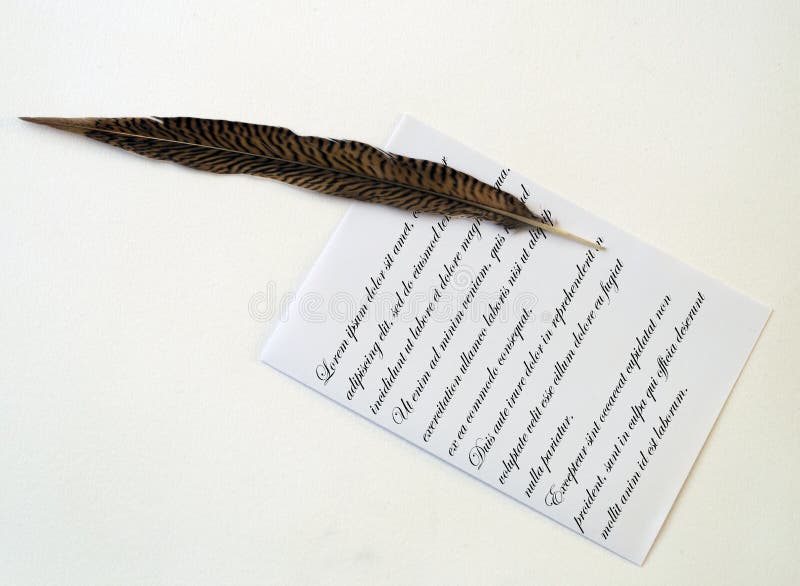 Lorem ipsum dolor sit amet,
adipiscing elit, sed do eiusmod
incididunt ut labore et dolore
Ut enim ad minim veniam, quis
exercitation ullamco laboris nisi ut aliquip
ex ea commodo consequat.
Duis aute irure dolor in reprehenderit in
voluptate velit esse cillum dolore eu fugiat
nulla pariatur.
Excepteur sint occaecat cupidatat non
proident, sunt in culpa qui officia deserunt
mollit anim id est laborum.
dreamstime